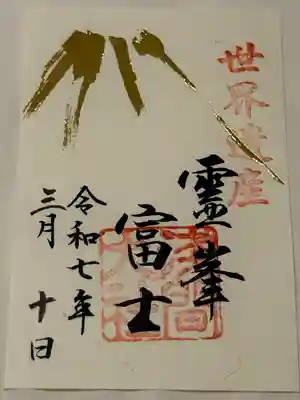 世界遺産
霊峯
富士
令和七年
三月 十日